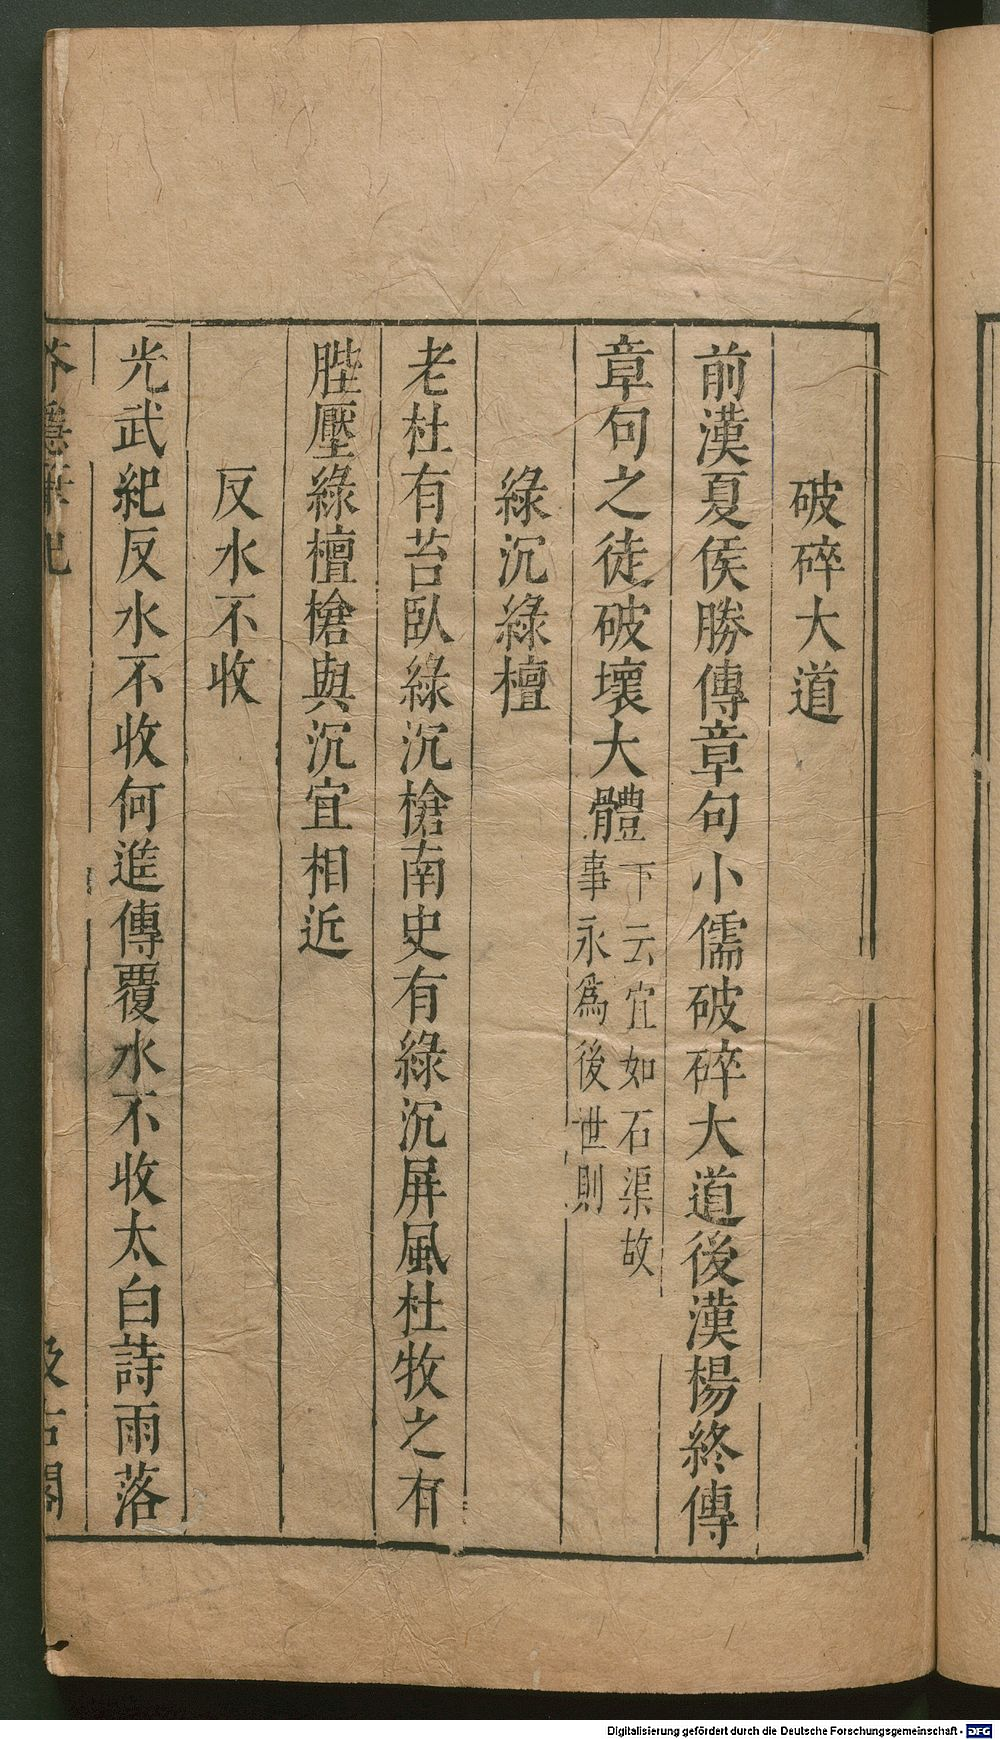 破碎大道
前漢夏侯勝傳章句小儒破碎大道後漢楊終傳
章句之徒破壞大體下云宜如石渠故
事永爲後世則
綠沉綠檀
老杜有苔臥綠沉槍南史有綠沉屏風杜牧之有
陛壓綠檀槍與沉宜相近
反水不收
光武紀反水不收何進傳覆水不收太白詩雨落
芥隱筆記
汲古閣
Digitalisierung gefördert durch die Deutsche Forschungsgemeinschaft - DFG